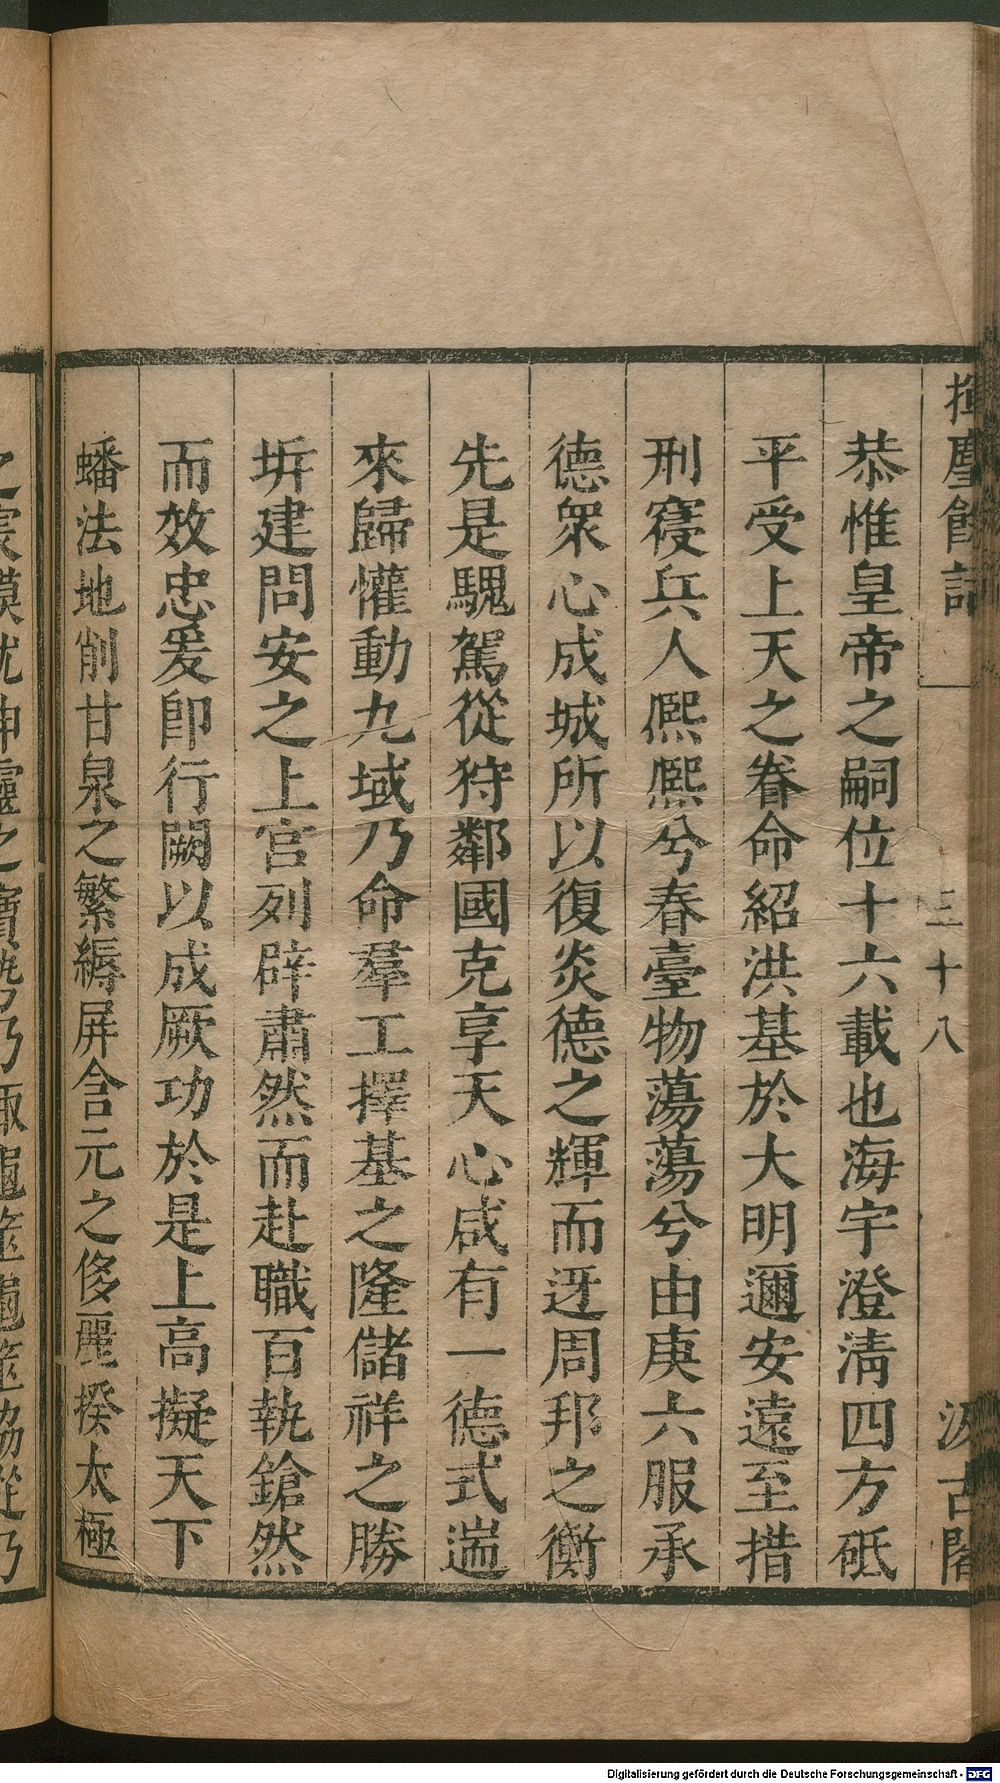 揮麈餘話
三十八
汲古閣
恭惟皇帝之嗣位十六載也海宇澄清四方砥
平受上天之眷命紹洪基於大明邇安遠至措
刑寑兵人熈熈兮春臺物蕩蕩兮由庚六服承
德衆心成城所以復炎德之輝而迓周邦之衡
先是騩駕從狩鄰國克享天心咸有一德式遄
來歸懽動九域乃命羣工擇基之隆儲祥之勝
圻建問安之上宫列辟肅然而赴職百執鎗然
而效忠爰卽行闕以成厥功於是上高擬天下
蟠法地削甘泉之繁縟屏含元之侈麗揆太極
之宸模
Digitalisierung gefördert durch die Deutsche Forschungsgemeinschaft - DFG